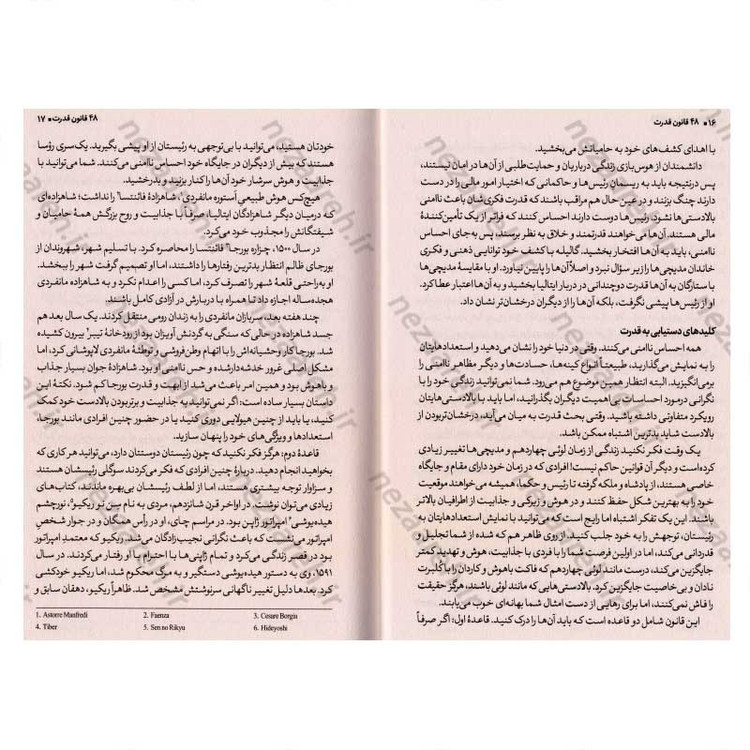 ۱۶ • ۴۸ قانون قدرت
با اهدای کشف‌های خود به حامیانش می‌بخشید.
دانشمندان از هوس‌بازی زندگی درباریان و حمایت‌طلبی از آن‌ها در امان نیستند،
پس درنتیجه باید به ریسمان رئیس‌ها و حاکمانی که اختیار امور مالی را در دست
دارند چنگ بزنند و در عین حال هم مراقب باشند که قدرت فکری‌شان باعث ناامنی
بالادستی‌ها نشود. رئیس‌ها دوست دارند احساس کنند که فراتر از یک تأمین‌کنندهٔ
مالی هستند. آن‌ها می‌خواهند قدرتمند و خلاق به نظر برسند، پس به‌جای احساس
ناامنی، باید به آن‌ها افتخار ببخشید. گالیله با کشف خود توانایی ذهنی و فکری
خاندان مدیچی‌ها را زیر سؤال نبرد و اصلاً آن‌ها را پایین نیاورد. او با مقایسهٔ مدیچی‌ها
با ستارگان به آن‌ها قدرت دوچندانی در دربار ایتالیا بخشید و به آن‌ها اعتبار عطا کرد.
او از رئیس‌ها پیشی نگرفت، بلکه آن‌ها را از دیگران درخشان‌تر نشان داد.
کلیدهای دستیابی به قدرت
همه احساس ناامنی می‌کنند. وقتی در دنیا خود را نشان می‌دهید و استعدادهایتان
را به نمایش می‌گذارید، طبیعتاً انواع کینه‌ها، حسادت‌ها و دیگر مظاهر ناامنی را
برمی‌انگیزید. البته انتظار همین موضوع هم می‌رود. شما نمی‌توانید زندگی خود را با
نگرانی درمورد احساسات بی‌اهمیت دیگران بگذرانید، اما باید با بالادستی‌هایتان
رویکرد متفاوتی داشته باشید. وقتی بحث قدرت به میان می‌آید، درخشان‌تربودن از
بالادست شاید بدترین اشتباه ممکن باشد.
یک وقت فکر نکنید زندگی از زمان لوئی چهاردهم و مدیچی‌ها تغییر زیادی
کرده است و دیگر آن قوانین حاکم نیست! افرادی که در زمان خود دارای مقام و جایگاه
خاصی هستند، از پادشاه و ملکه گرفته تا رئیس و حکما، همیشه می‌خواهند موقعیت
خود را به بهترین شکل حفظ کنند و در هوش و زیرکی و جذابیت از اطرافیان بالاتر
باشند. این یک تفکر اشتباه اما رایج است که می‌توانید با نمایش استعدادهایتان به
رئیستان، توجهش را به خود جلب کنید. از روی ظاهر هم که شده از شما تجلیل و
قدردانی می‌کند، اما در اولین فرصت شما را با فردی با جذابیت، هوش و تهدید کمتر
جایگزین می‌کند. درست مانند لوئی چهاردهم که فاکت باهوش و کاردان را با کُلبرت
نادان و بی‌خاصیت جایگزین کرد. بالادستی‌هایی که مانند لوئی باشند، هرگز حقیقت
را فاش نمی‌کنند، اما برای رهایی از دست امثال شما بهانه‌ای خوب می‌یابند.
این قانون شامل دو قاعده است که باید آن‌ها را درک کنید. قاعدهٔ اول: اگر صرفاً
۴۸ قانون قدرت • ۱۷
خودتان هستید، می‌توانید با بی‌توجهی به رئیستان از او پیشی بگیرید. یک‌سری رؤسا
هستند که بیش از دیگران در جایگاه خود احساس ناامنی می‌کنند. شما می‌توانید با
جذابیت و هوش سرشار خود آن‌ها را کنار بزنید و بدرخشید.
هیچ‌کس هوش طبیعی آستوره مانفردی¹، شاهزادهٔ فائنتسا² را نداشت؛ شاهزاده‌ای
که درمیان دیگر شاهزادگان ایتالیا، صرفاً با جذابیت و روح بزرگش همهٔ حامیان و
شیفتگانش را مجذوب خود می‌کرد.
در سال ۱۵۰۰، چزاره بورجا³ فائنتسا را محاصره کرد. با تسلیم شهر، شهروندان از
بورجای ظالم انتظار بدترین رفتارها را داشتند، اما او تصمیم گرفت شهر را ببخشد.
او به‌راحتی قلعهٔ شهر را تصرف کرد، اما کسی را اعدام نکرد و به شاهزاده مانفردی
هجده‌ساله اجازه داد تا همراه با دربارش در آزادی کامل باشند.
چند هفته بعد، سربازان مانفردی را به زندان رومی منتقل کردند. یک سال بعد هم
جسد شاهزاده در حالی که سنگی به گردنش آویزان بود از رودخانهٔ تیبر⁴ بیرون کشیده
شد. بورجا کار وحشیانه‌اش را با اتهام وطن‌فروشی و توطئهٔ مانفردی لاپوشانی کرد، اما
مشکل اصلی غرور خدشه‌دارشده و حس ناامنی او بود. شاهزادهٔ جوان بسیار جذاب
و باهوش بود و همین امر باعث می‌شد از ابهت و قدرت بورجا کم شود. نکتهٔ این
داستان بسیار ساده است: اگر نمی‌توانید به جذابیت و برتربودن بالادست خود کمک
کنید، یا باید از چنین هیولایی دوری کنید یا در حضور چنین افرادی مانند بورجا،
استعدادها و ویژگی‌های خود را پنهان سازید.
قاعدهٔ دوم: هرگز فکر نکنید که چون رئیستان دوستتان دارد، می‌توانید هر کاری که
بخواهید انجام دهید. دربارهٔ چنین افرادی که فکر می‌کردند سوگلی رئیسشان هستند
و سزاوار توجه بیشتری هستند، اما از لطف رئیسشان بی‌بهره ماندند، کتاب‌های
زیادی می‌توان نوشت. در اواخر قرن شانزدهم، مردی به نام سِن نو ریکیو⁵، نورچشم
هیده‌یوشی⁶ امپراتور ژاپن بود. در مراسم چای، او در رأس همگان و در جوار شخص
امپراتور می‌نشست که باعث نگرانی نجیب‌زادگان می‌شد. ریکیو که معتمدِ امپراتور
بود در قصر زندگی می‌کرد و تمام ژاپنی‌ها با احترام با او رفتار می‌کردند. در سال
۱۵۹۱، وی به دستور هیده‌یوشی دستگیر و به مرگ محکوم شد، اما ریکیو خودکشی
کرد. بعدها دلیل تغییر ناگهانی سرنوشتش مشخص شد. ظاهراً ریکیو، دهقان سابق و
1. Astorre Manfredi 2. Faenza 3. Cesare Borgia
4. Tiber 5. Sen no Rikyu 6. Hideyoshi
nezareh.ir